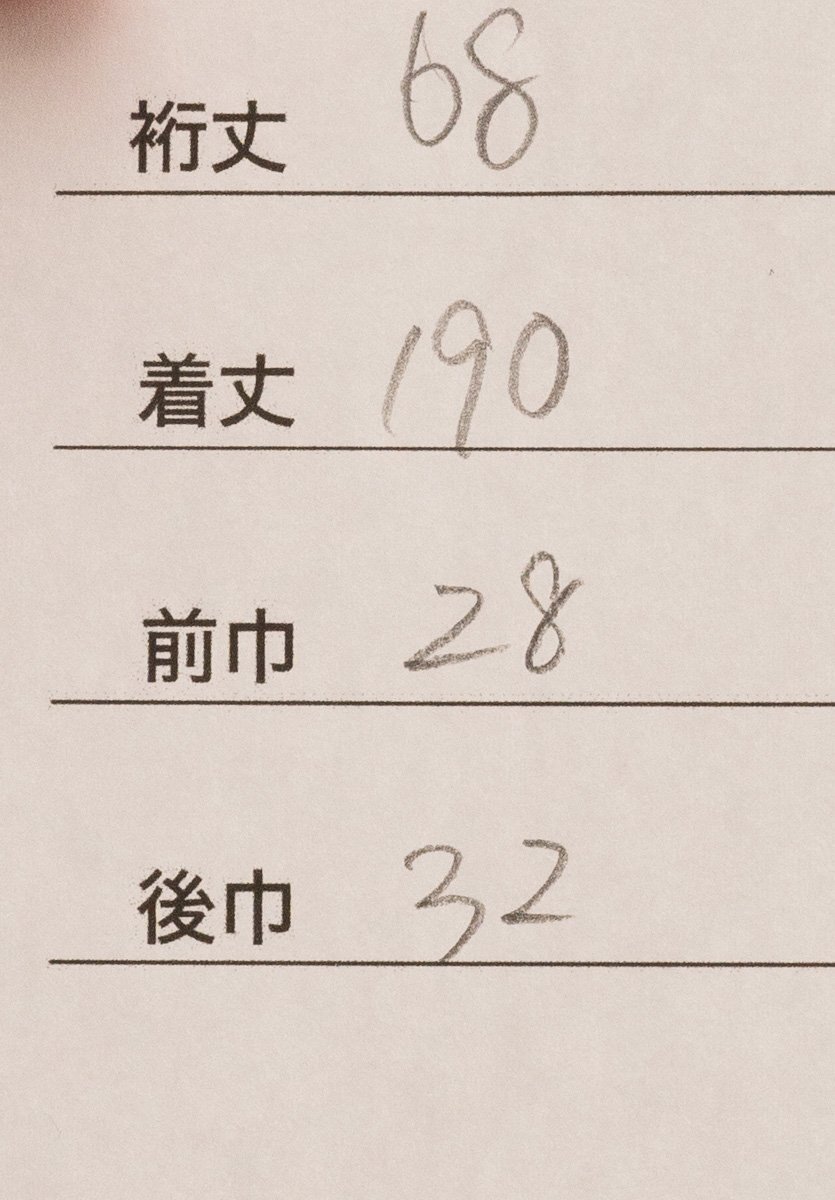 裄丈 68
着丈 190
前巾 28
後巾 32